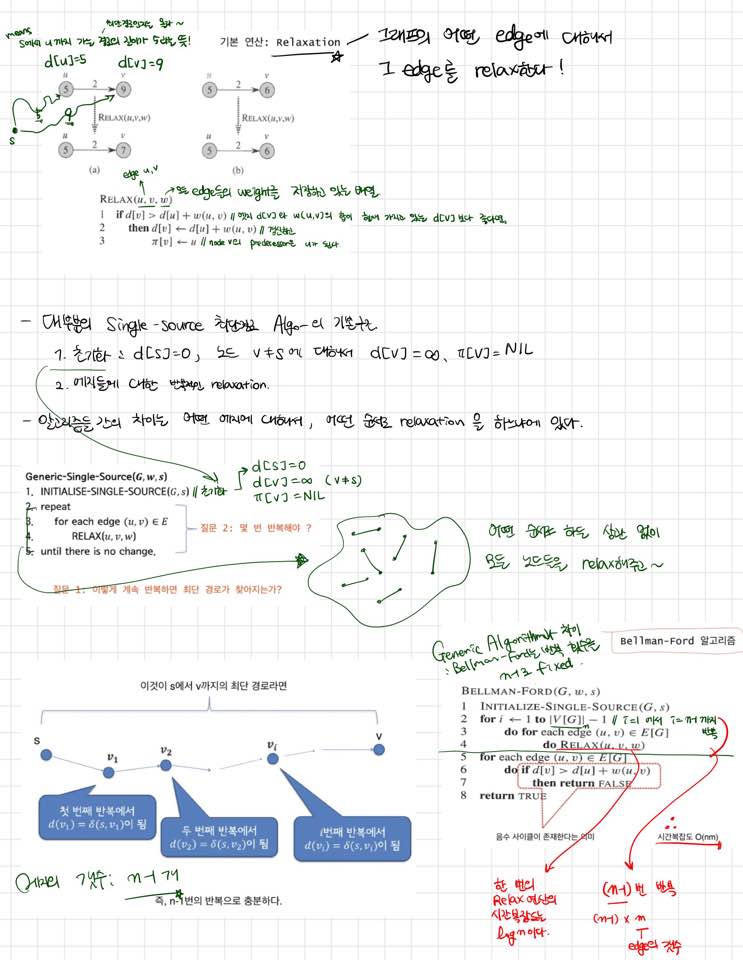 최단경로인지는 몰라~
means S에서 u까지 가는 경로의 길이가 5라는 뜻!
d[u]=5 d[v]=9
기본 연산: Relaxation
그래프의 어떤 edge에 대해서
그 edge를 relax한다!
u v u v
5 2 9 5 2 6
5 9
S
RELAX(u,v,w) RELAX(u,v,w)
u v u v
5 2 7 5 2 6
(a) (b)
edge u,v
모든 edge들의 weight를 저장하고 있는 배열
RELAX(u, v, w)
1 if d[v] > d[u] + w(u, v) // 만약 d[u]와 w(u,v)의 합이 현재 가지고 있는 d[v]보다 좋다면,
2 then d[v] ← d[u] + w(u, v) // 갱신하고
3 π[v] ← u // node v의 predecessor는 u가 된다
- 대부분의 Single-source 최단경로 Algo-의 기본구조
1. 초기화: d[s]=0, 노드 v≠s에 대해서 d[v]=∞, π[v]=NIL
2. 에지들에 대한 반복적인 relaxation.
- 알고리즘들 간의 차이는 어떤 에지에 대해서, 어떤 순서로 relaxation을 하느냐에 있다.
Generic-Single-Source(G, w, s)
1. INITIALISE-SINGLE-SOURCE(G, s) // 초기화
d[s]=0
d[v]=∞ (v≠s)
π[v]=NIL
2. repeat
3. for each edge (u, v) ∈ E
4. RELAX(u, v, w)
5. until there is no change.
질문 2: 몇 번 반복해야 ?
질문 1: 이렇게 계속 반복하면 최단 경로가 찾아지는가?
어떤 순서로 하든 상관 없이
모든 노드들을 relax해주고~
Generic Algorithm과 차이
: Bellman-Ford는 반복 횟수를
n-1로 fixed.
Bellman-Ford 알고리즘
BELLMAN-FORD(G, w, s)
1 INITIALIZE-SINGLE-SOURCE(G, s)
2 for i ← 1 to |V[G]| − 1 // i=1 에서 i=n-1 까지 반복
n
3 do for each edge (u, v) ∈ E[G]
4 do RELAX(u, v, w)
5 for each edge (u, v) ∈ E[G]
6 do if d[v] > d[u] + w(u, v)
7 then return FALSE
8 return TRUE
음수 사이클이 존재한다는 의미
∴
시간복잡도 O(nm)
한 번의
Relax 연산의
시간복잡도는
log n이다.
(n-1)번 반복
(n-1) × m
edge의 갯수
이것이 s에서 v까지의 최단 경로라면
S v₁ v₂ vᵢ V
첫 번째 반복에서
d(v₁) = δ(s, v₁)이 됨
두 번째 반복에서
d(v₂) = δ(s, v₂)이 됨
i번째 반복에서
d(vᵢ) = δ(s, vᵢ)이 됨
에지의 갯수: n-1개
즉, n-1번의 반복으로 충분하다.